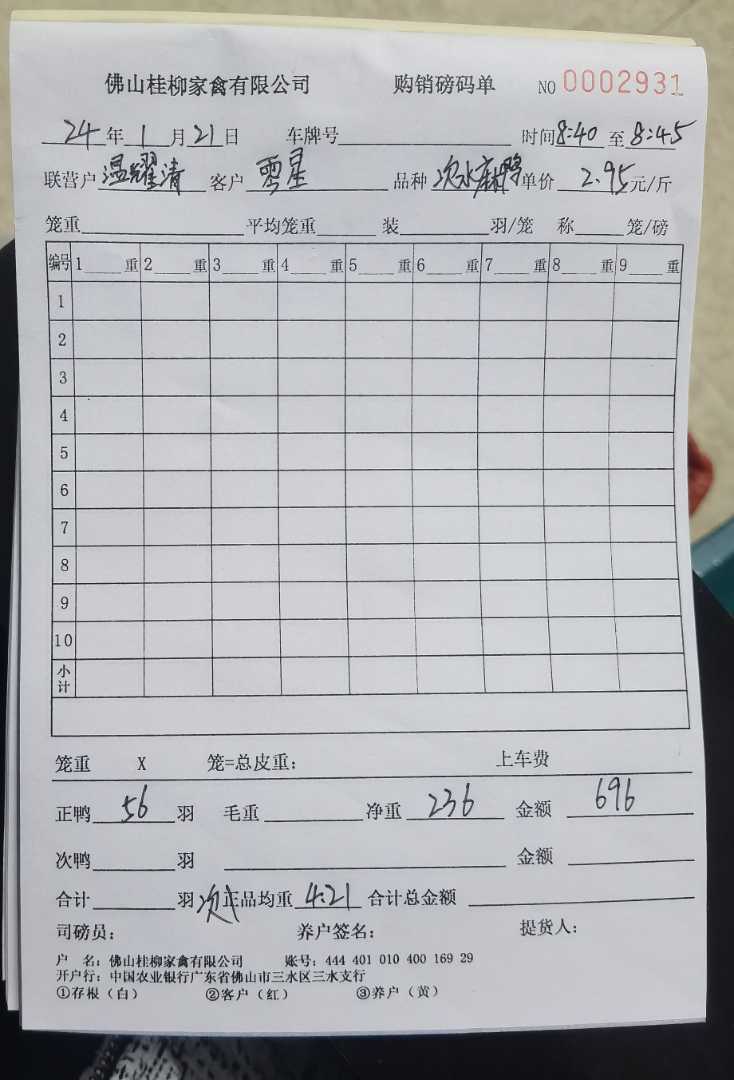 佛山桂柳家禽有限公司 购销磅码单 NO 0002931
24年1月21日 车牌号 时间8:40至8:45
联营户温耀清 客户零星 品种次水麻鸭 单价2.95元/斤
笼重 平均笼重 装 羽/笼 称 笼/磅
编号 1 重 2 重 3 重 4 重 5 重 6 重 7 重 8 重 9 重
1
2
3
4
5
6
7
8
9
10
小计
笼重 X 笼=总皮重: 上车费
正鸭56羽 毛重 净重236 金额696
次鸭 羽 金额
合计 羽 次 正品均重4.21 合计总金额
司磅员: 养户签名: 提货人:
户 名: 佛山桂柳家禽有限公司 账号: 444 401 010 400 169 29
开户行: 中国农业银行广东省佛山市三水区三水支行
①存根（白） ②客户（红） ③养户（黄）